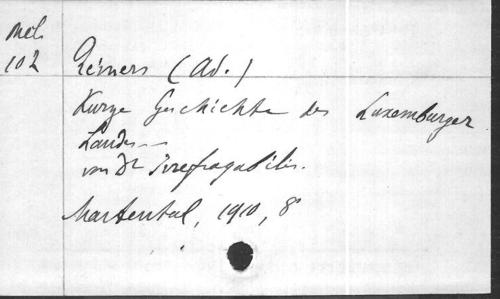 Mél.
102
Reiners (Ad.)
Kurze Geschichte des Luxemburger
Landes
von Dr Irrefragabilis.
Martental, 1910, 8°